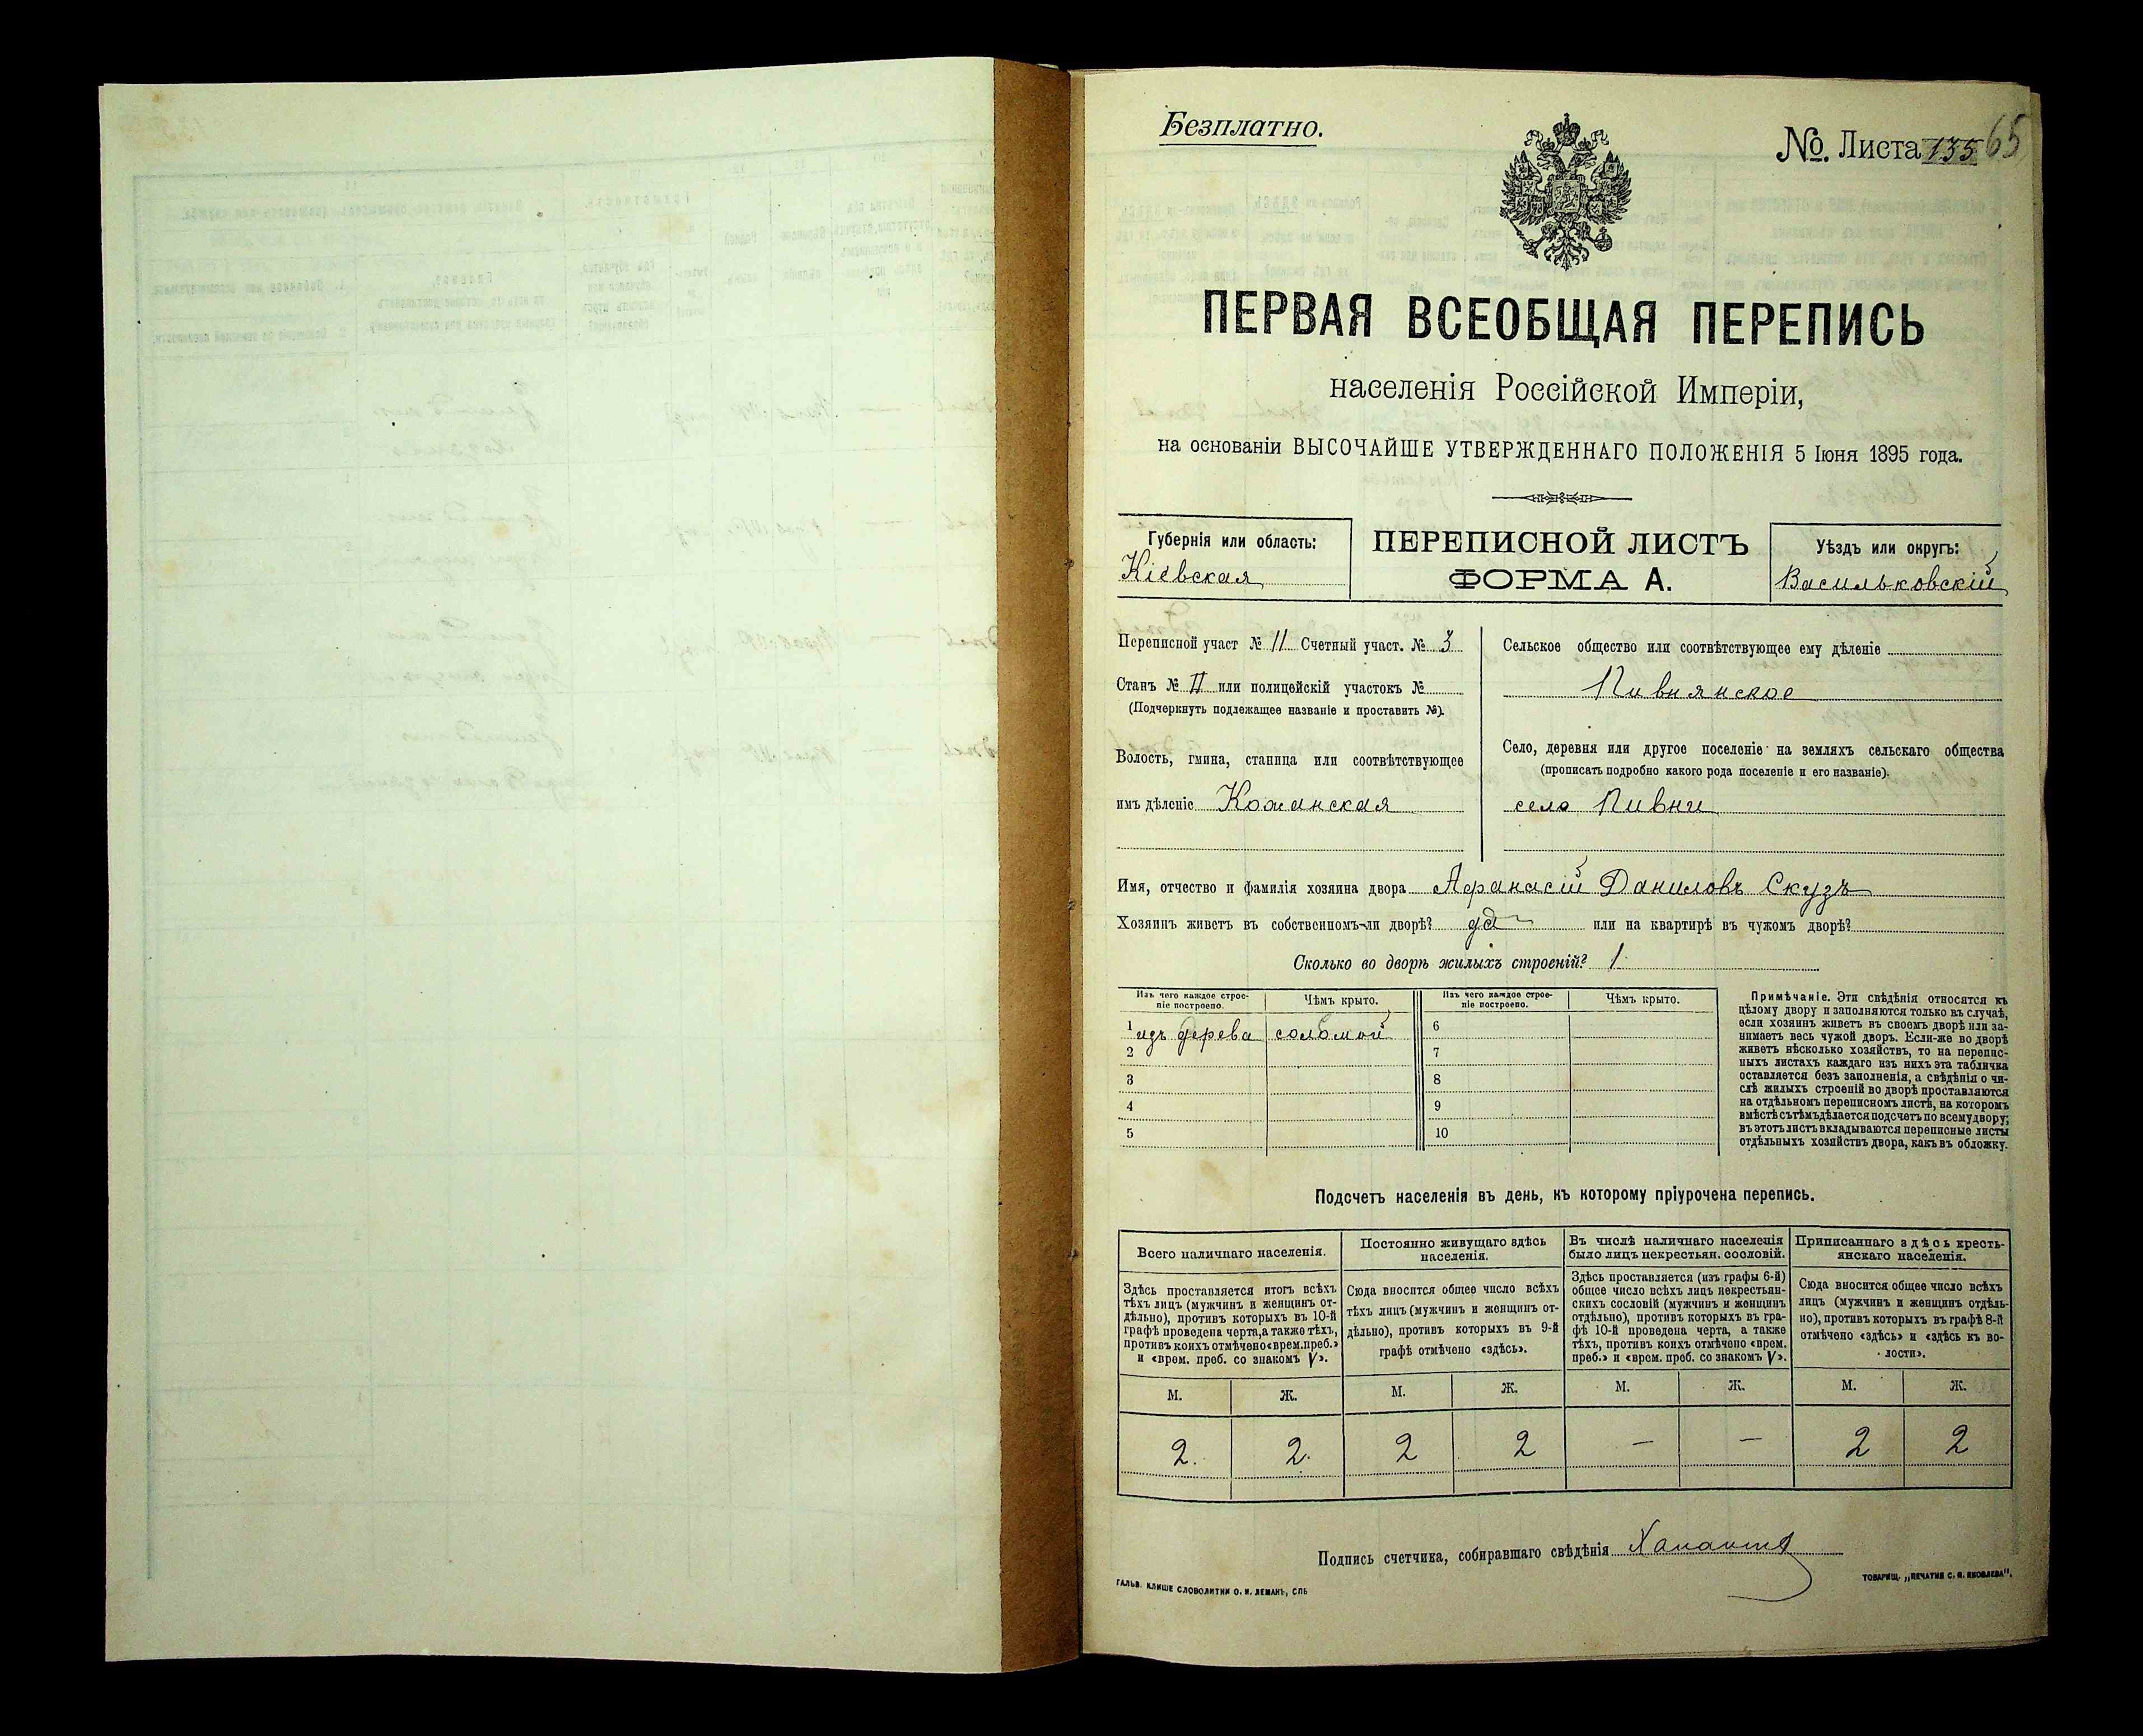 Безплатно.
№. Листа 135 65
ПЕРВАЯ ВСЕОБЩАЯ ПЕРЕПИСЬ
населенія Россійской Имперіи,
на основаніи ВЫСОЧАЙШЕ УТВЕРЖДЕННАГО ПОЛОЖЕНІЯ 5 Іюня 1895 года.
Губернія или область:
Кіевская
ПЕРЕПИСНОЙ ЛИСТЪ
ФОРМА А.
Уѣздъ или округъ:
Васильковскій
Переписной участ № 11 Счетный участ. № 3
Станъ № II или полицейскій участокъ №
(Подчеркнуть подлежащее названіе и проставить №).
Волость, гмина, станица или соотвѣтствующее
имъ дѣленіе Кожанская
Сельское общество или соотвѣтствующее ему дѣленіе
Пивнянское
Село, деревня или другое поселеніе на земляхъ сельскаго общества
(прописать подробно какого рода поселеніе и его названіе).
село Пивни
Имя, отчество и фамилія хозяина двора Афанасій Даниловъ Скузъ
Хозяинъ живетъ въ собственномъ-ли дворѣ? да или на квартирѣ въ чужомъ дворѣ?
Сколько во дворѣ жилыхъ строеній? 1
Изъ чего каждое строе-
ніе построено.
Чѣмъ крыто.
Изъ чего каждое строе-
ніе построено.
Чѣмъ крыто.
1 изъ дерева соломой 6
2 7
3 8
4 9
5 10
Примѣчаніе. Эти свѣдѣнія относятся къ
цѣлому двору и заполняются только въ случаѣ,
если хозяинъ живетъ въ своемъ дворѣ или за-
нимаетъ весь чужой дворъ. Если-же во дворѣ
живетъ нѣсколько хозяйствъ, то на перепис-
ныхъ листахъ каждаго изъ нихъ эта табличка
оставляется безъ заполненія, а свѣдѣнія о чи-
слѣ жилыхъ строеній во дворѣ проставляются
на отдѣльномъ переписномъ листѣ, на которомъ
вмѣстѣ съ тѣмъ дѣлается подсчетъ по всему двору;
въ этотъ листъ вкладываются переписные листы
отдѣльныхъ хозяйствъ двора, какъ въ обложку.
Подсчетъ населенія въ день, къ которому пріурочена перепись.
Всего наличнаго населенія.
Здѣсь проставляется итогъ всѣхъ
тѣхъ лицъ (мужчинъ и женщинъ от-
дѣльно), противъ которыхъ въ 10-й
графѣ проведена черта, а также тѣхъ,
противъ коихъ отмѣчено «врем. преб.»
и «врем. преб. со знакомъ V».
Постоянно живущаго здѣсь
населенія.
Сюда вносится общее число всѣхъ
тѣхъ лицъ (мужчинъ и женщинъ от-
дѣльно), противъ которыхъ въ 9-й
графѣ отмѣчено «здѣсь».
Въ числѣ наличнаго населенія
было лицъ некрестьян. сословій.
Здѣсь проставляется (изъ графы 6-й)
общее число всѣхъ лицъ некрестьян-
скихъ сословій (мужчинъ и женщинъ
отдѣльно), противъ которыхъ въ гра-
фѣ 10-й проведена черта, а также
тѣхъ, противъ коихъ отмѣчено «врем.
преб.» и «врем. преб. со знакомъ V».
Приписаннаго здѣсь кресть-
янскаго населенія.
Сюда вносится общее число всѣхъ
лицъ (мужчинъ и женщинъ отдѣль-
но), противъ которыхъ въ графѣ 8-й
отмѣчено «здѣсь» и «здѣсь къ во-
лости».
М. Ж. М. Ж. М. Ж. М. Ж.
2. 2. 2 2 — — 2 2
Подпись счетчика, собиравшаго свѣдѣнія
ГАЛЬВ. КЛИШЕ СЛОВОЛИТНИ О. И. ЛЕМАНЪ, СПБ
ТОВАРИЩ. „ПЕЧАТНЯ С. П. ЯКОВЛЕВА".